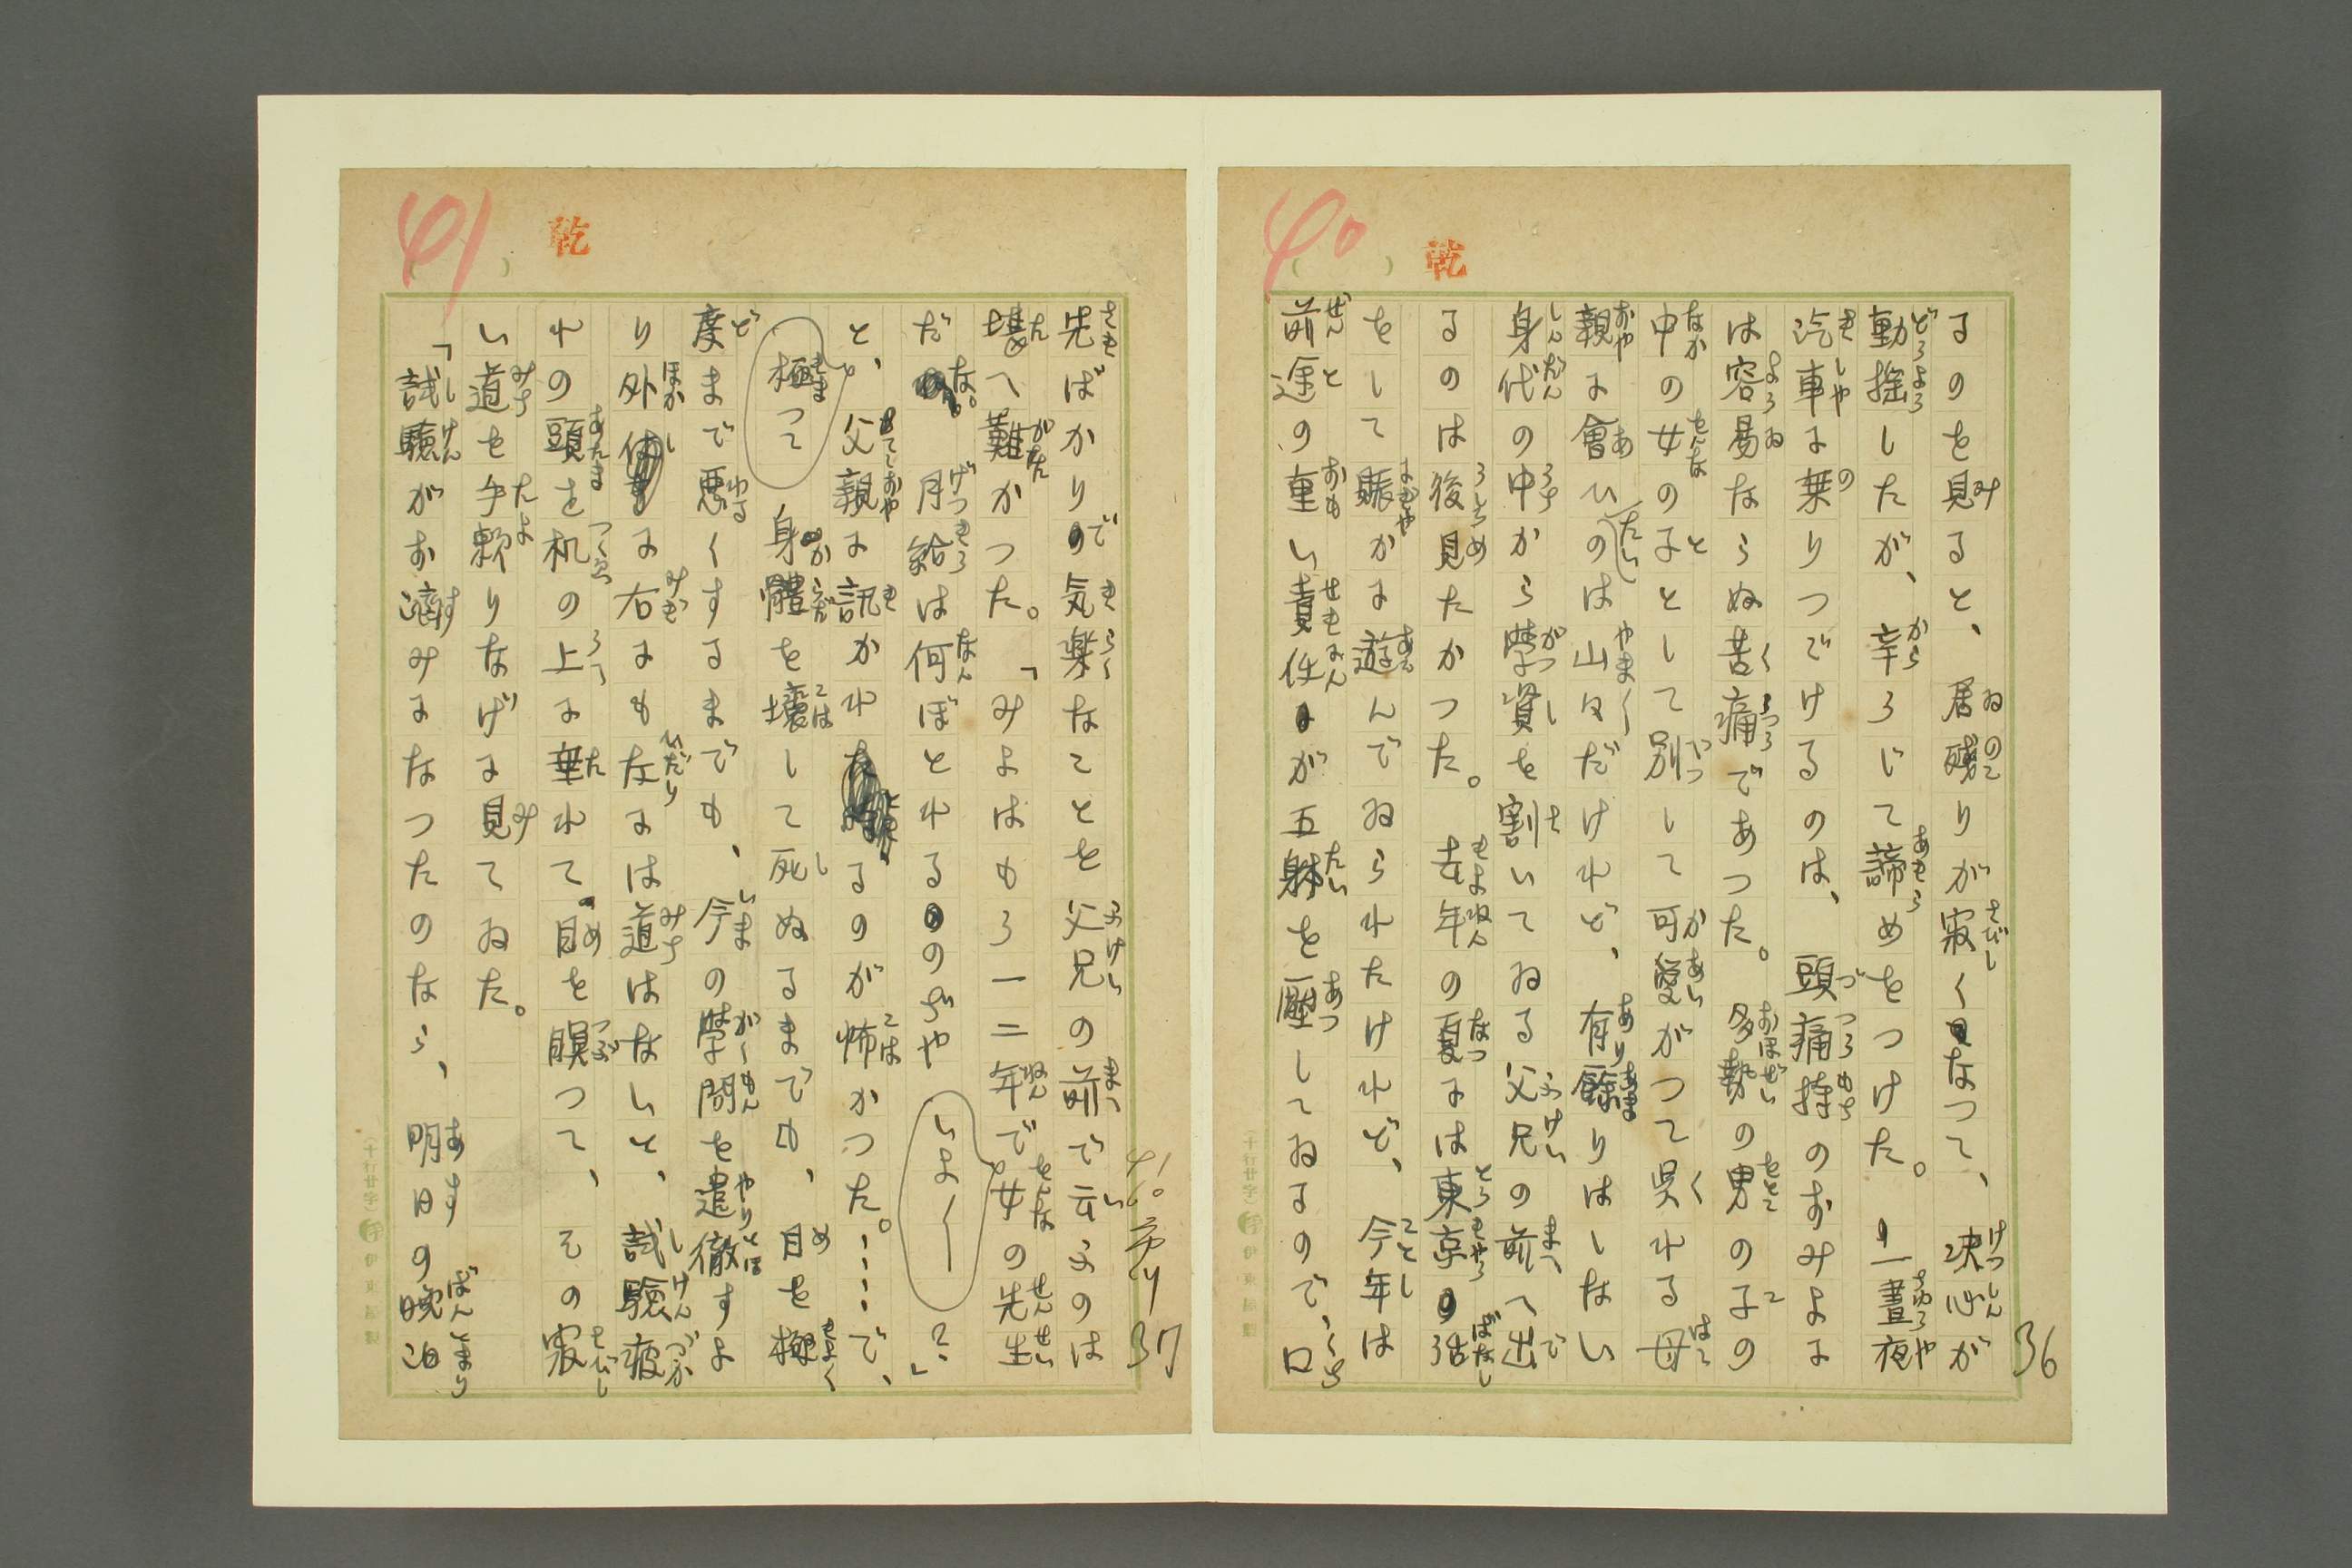 36
40
乾
るのを見ると、居残りが寂くなつて、決心が
動揺したが、辛うじて諦めをつけた。一晝夜
汽車に乗りつゞけるのは、頭痛持のおみよに
は容易ならぬ苦痛であつた。多勢の男の子の
中の女の子として別して可愛がつて呉れる母
親に會ひたいのは山々だけれど、有餘りはしない
身代の中から学資を割いてゐる父兄の前へ出
るのは後見たかつた。去年の夏には東京の話
をして賑かに遊んでゐられたけれど、今年は
前途の重い責任が五躰を壓してゐるので、口
37
41
乾
先ばかりで気楽なことを父兄の前で云ふのは
堪へ難かつた。「みよはもう一二年で女の先生
だな。月給は何ぼとれるのぢやいよ〱?」
と、父親に訊かれるのが怖かつた。……で、
極つて身體を壊して死ぬるまでも、目を極
度まで悪くするまでも、今の学問を遣徹すよ
り外に右にも左には道はないと、試驗疲
れの頭を机の上に垂れて。目を瞑つて、その寂
い道を手頼りなげに見てゐた。
「試驗がお濟みになつたのなら、明日の晩泊